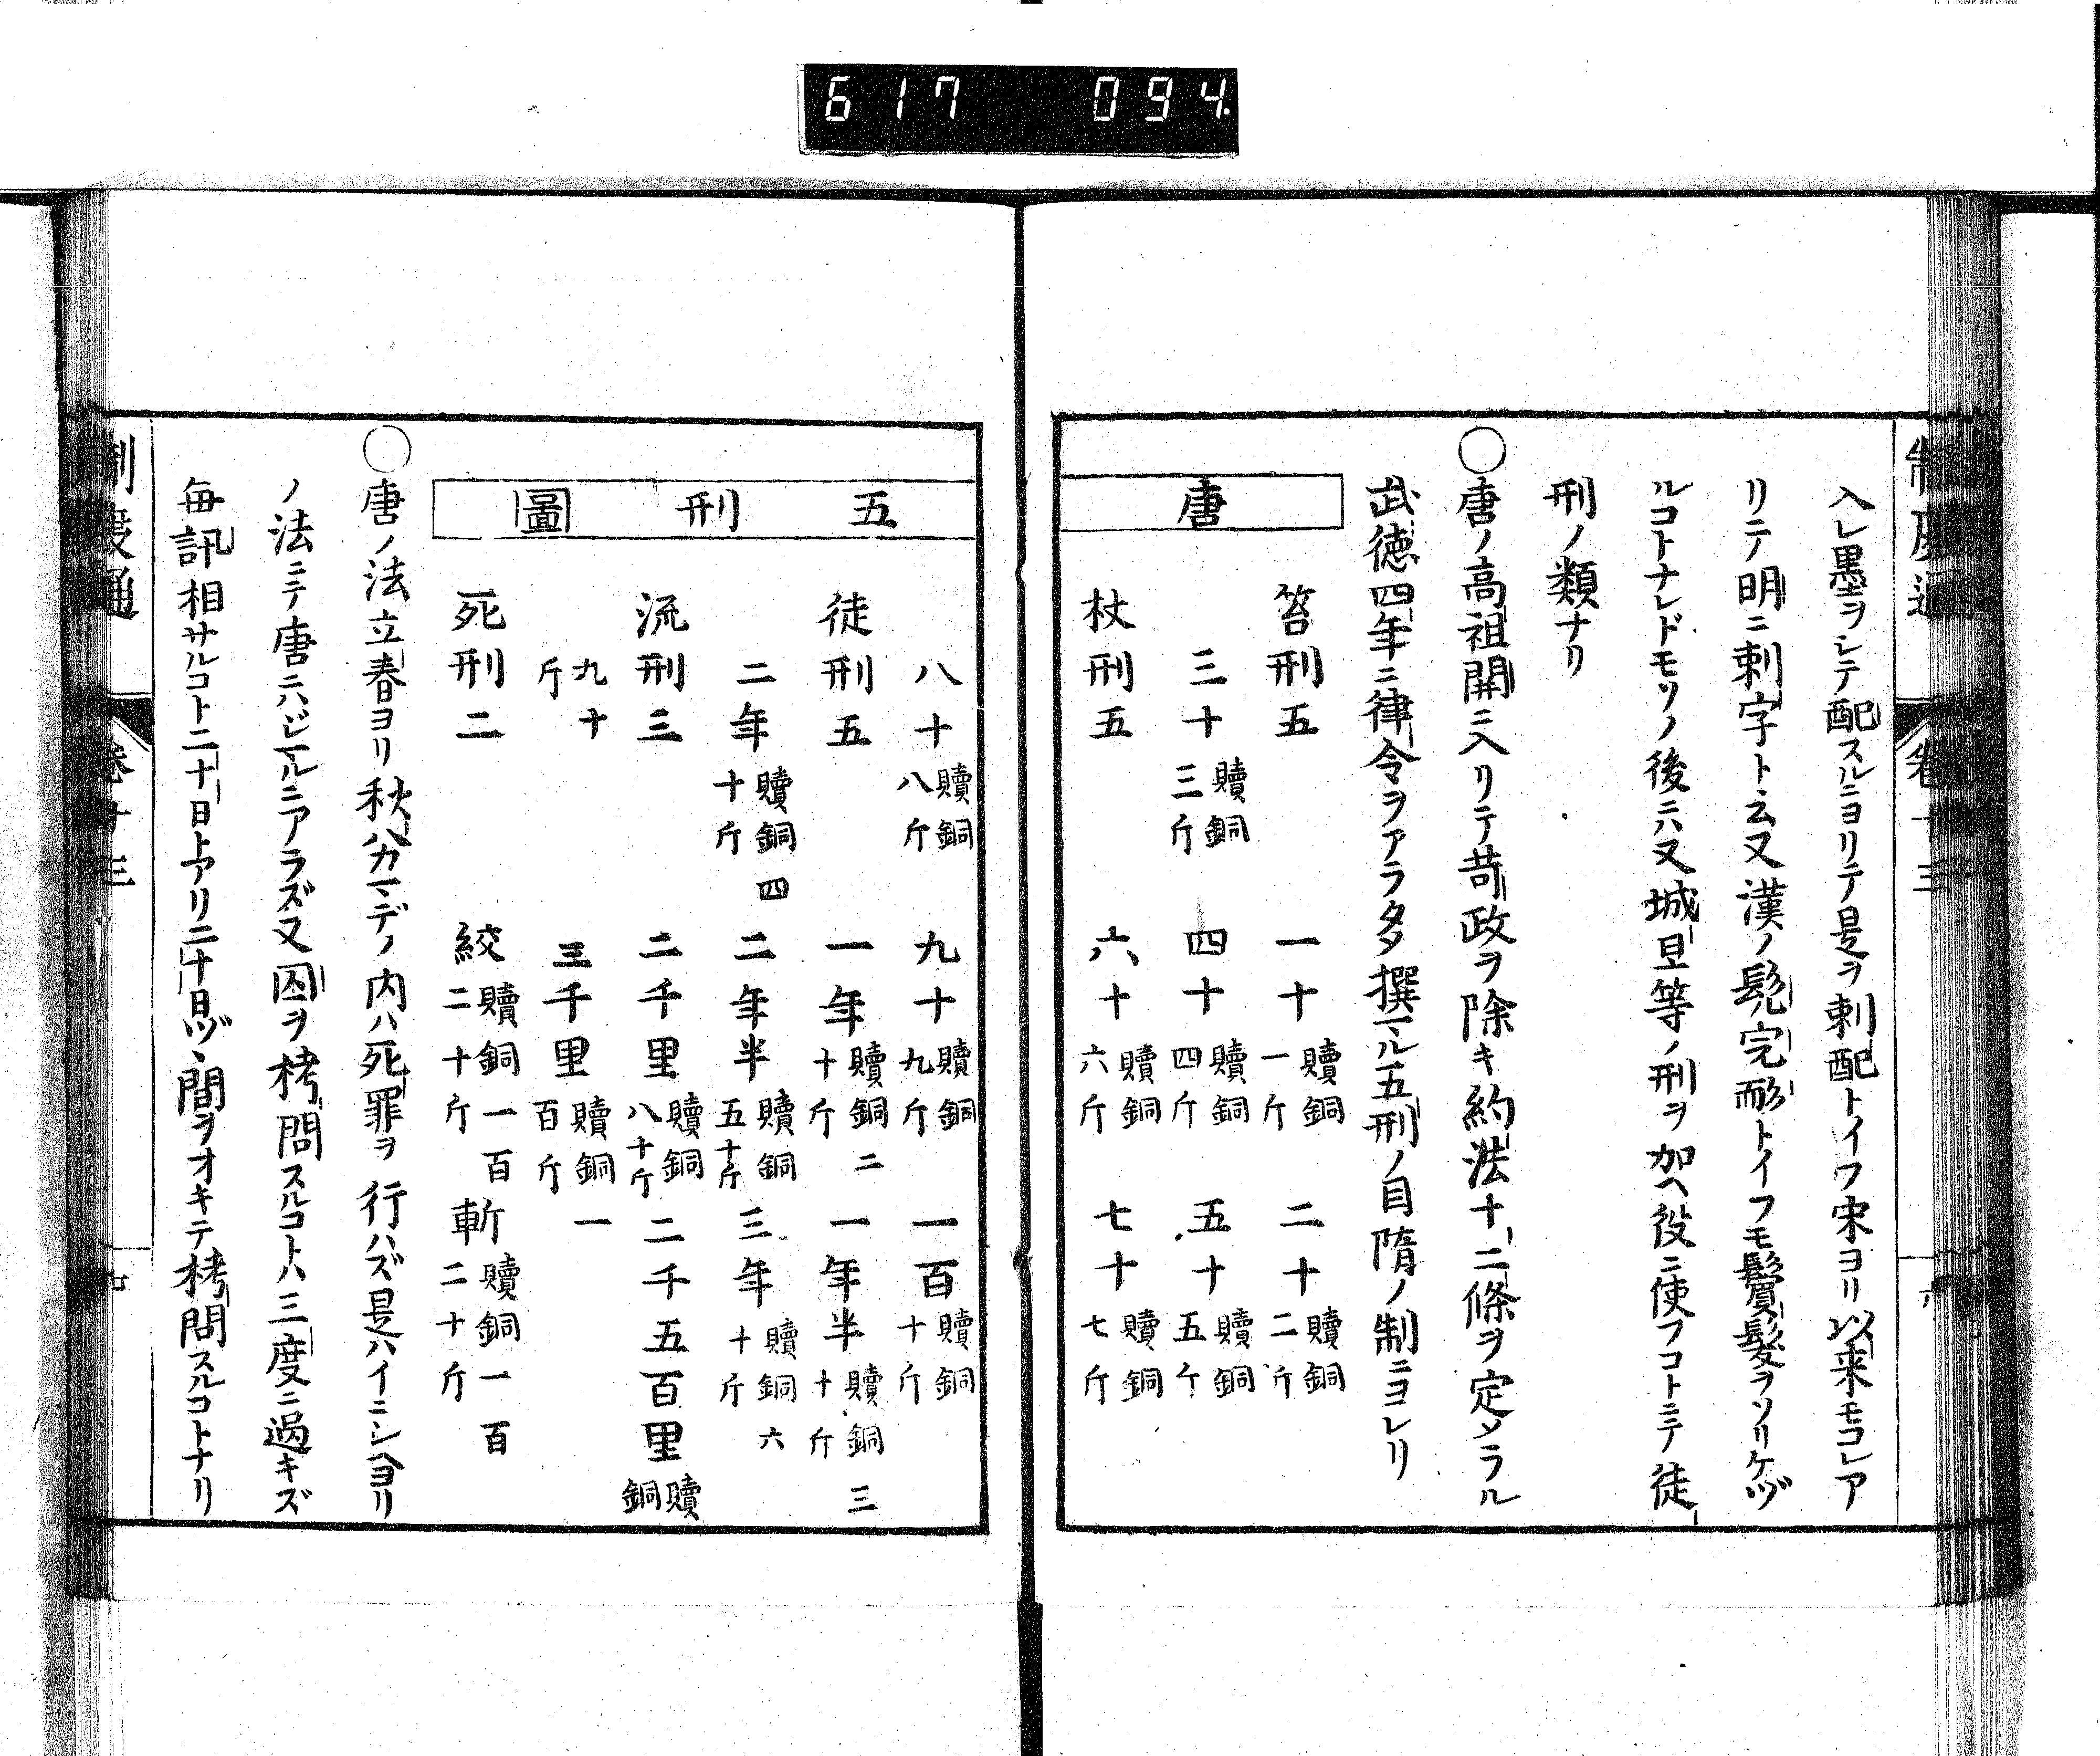 617 094
制度通 卷十三 六
入レ墨ヲシテ配スルニヨリテ是ヲ刺配トイフ宋ヨリ以来モコレア
リテ明ニ刺字ト云又漢ノ髡完耏トイフモ鬢髮ヲソリケヅ
ルコトナレドモソノ後ニハ又城旦等ノ刑ヲ加ヘ役ニ使フコトニテ徒
刑ノ類ナリ
○唐ノ高祖開ニ入リテ苛政ヲ除キ約法十二條ヲ定メラル
武徳四年ニ律令ヲアラタメ撰マル五刑ノ目隋ノ制ニヨレリ
唐
笞刑五 一十贖銅一斤 二十贖銅二斤
三十贖銅三斤 四十贖銅四斤 五十贖銅五斤
杖刑五 六十贖銅六斤 七十贖銅七斤
五刑圖
八十贖銅八斤 九十贖銅九斤 一百贖銅十斤
徒刑五 一年贖銅二十斤 一年半贖銅三十斤
二年贖銅四十斤 二年半贖銅五十斤 三年贖銅六十斤
流刑三 二千里贖銅八十斤 二千五百里贖銅
九十斤 三千里贖銅一百斤
死刑二 絞贖銅一百二十斤 斬贖銅一百二十斤
○唐ノ法立春ヨリ秋分マデノ内ハ死罪ヲ行ハズ是ハイニシヘヨリ
ノ法ニテ唐ニハジマルニアラズ又囚ヲ栲問スルコトハ三度ニ過キズ
毎訊相サルコト二十日トアリ二十日ヅヽ間ヲオキテ栲問スルコトナリ
制度通 卷十三 七